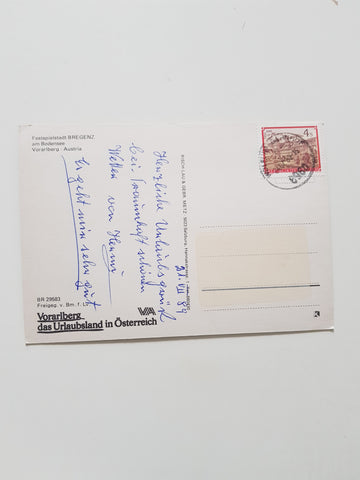 Festspielstadt BREGENZ
am Bodensee
Vorarlberg · Austria
21.VII 89
Herzliche Urlaubsgrüße
bei traumhaft schönem
Wetter von
Es geht mir sehr gut
BR 29583
Freigeg. v. Bm. f. LV
Vorarlberg
das Urlaubsland in Österreich
VA
RISCH-LAU & GEBR. METZ
4